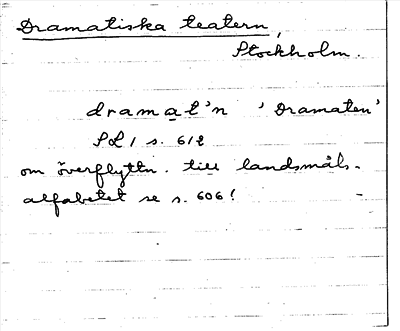 Dramatiska teatern,
Stockholm.
dramat'n 'Dramaten'
SL 1 s. 612
om överflyttn. till landsmåls-
alfabetet se s. 606!